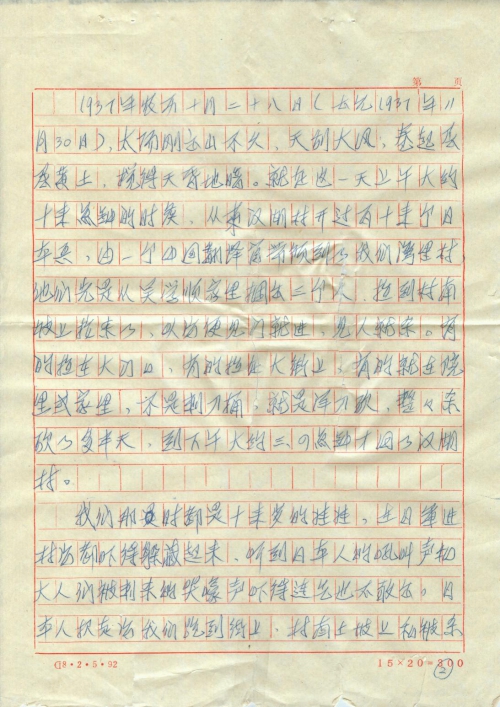 第 页
1937年农历十月二十八日(公元1937年11
月30日),太阳刚出山不久,天刮大风,卷起
黄土,搅得天昏地暗。就在这一天上午大约
十来点钟的时候,从东汉湖村开过百十来个日
本兵,由一个中国翻译官带领到了我们湾里村,
他们先是从吴学顺家里捆出三个人,拉到村南
坡上拉来了,以后便见门就进,见人就杀。有
的拉在大门口,有的拉在大街上,有的就在院
里或家里,不是刺刀捅,就是洋刀砍,整々杀
砍了多半天,到下午大约三、四点钟才回了汉湖
村。
我们那时都是十来岁的娃娃,在日军进
村后都吓得躲藏起来,听到日本人的吼叫声和
大人们被刺杀的哭嚎声吓得连气也不敢出。日
本人执走后我们跑到街上,村南土坡上和被杀
G8·2·5·92
15×20=300
2